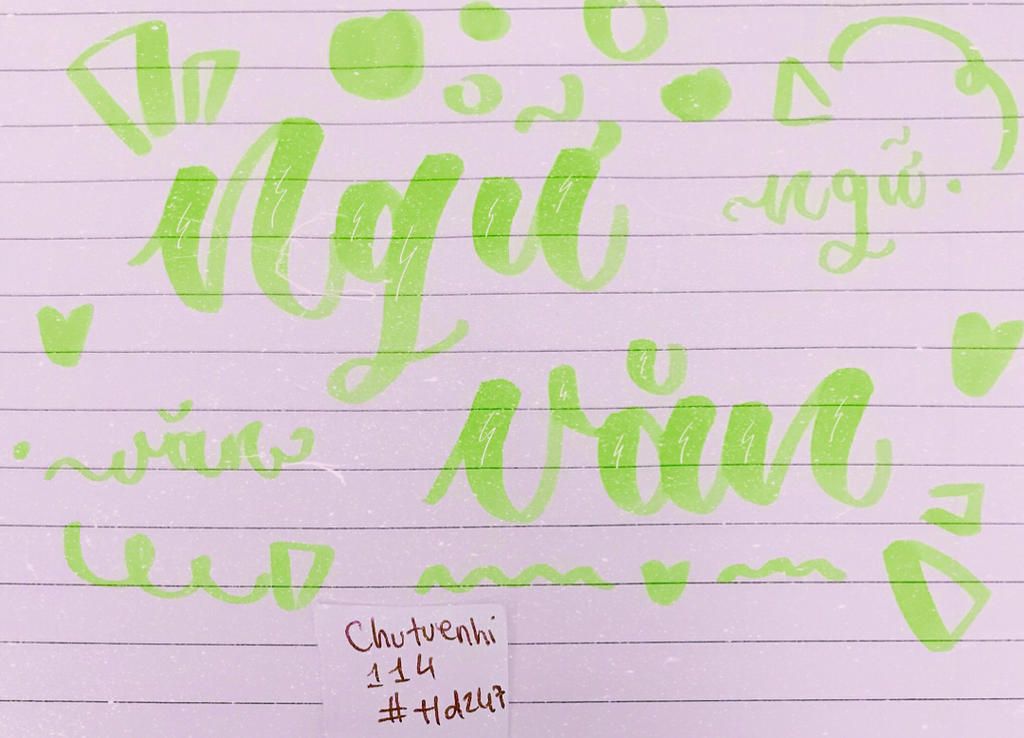 Ngữ
ngữ.
văn
văn
Chutuenhi
114
#Hd247